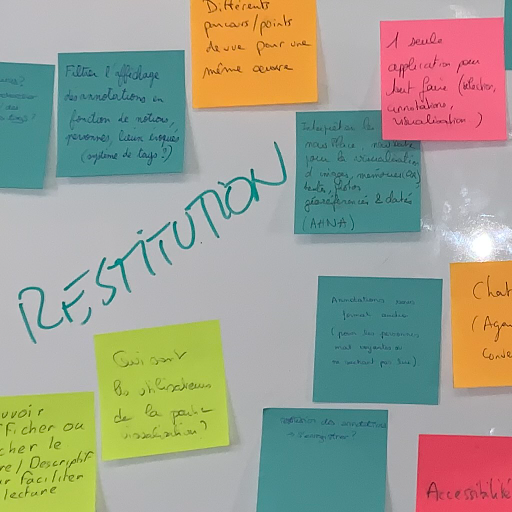 Différents
parcours/points
de vue pour une
même œuvre
1 seule
application pour
tout faire (sélection,
annotations,
visualisation)
Filtrer l'affichage
des annotations en
fonction de notions,
personnes, lieux évoqués
(système de tags?)
tags?
Interpréter le
pour la visualisation
d'images,
textes, photos
géoréférencés & datés
(AHNA)
RESTITUTION
Annotations sous
format audio
(pour les personnes
mal voyantes ou
ne sachant pas lire)
Chat
(Agen
Conve
Qui sont
les utilisateurs
de la partie
visualisation?
ouvoir
fficher ou
cher le
re/Descriptif
r faciliter
lecture
des annotations
à enregistrer?
Accessibilité